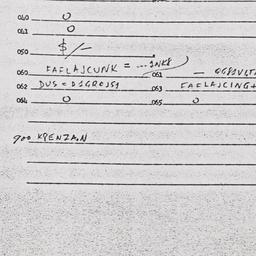 040 0
041 0
050 $/-
060 FAFLAJCUNK = ---INK8 061 -
062 DUS = D1GR0JS1 063 FAFLAJCING+
064 0 065 0
900 KPENZA.N